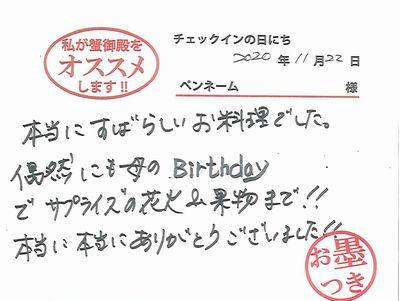 私が蟹御殿を
オススメ
します!!
チェックインの日にち
2020 年 11 月 22 日
ペンネーム 様
本当にすばらしいお料理でした。
偶然にも母の Birthday
で サプライズの花火&果物まで!!
本当に本当にありがとうございました!!
お墨
つき